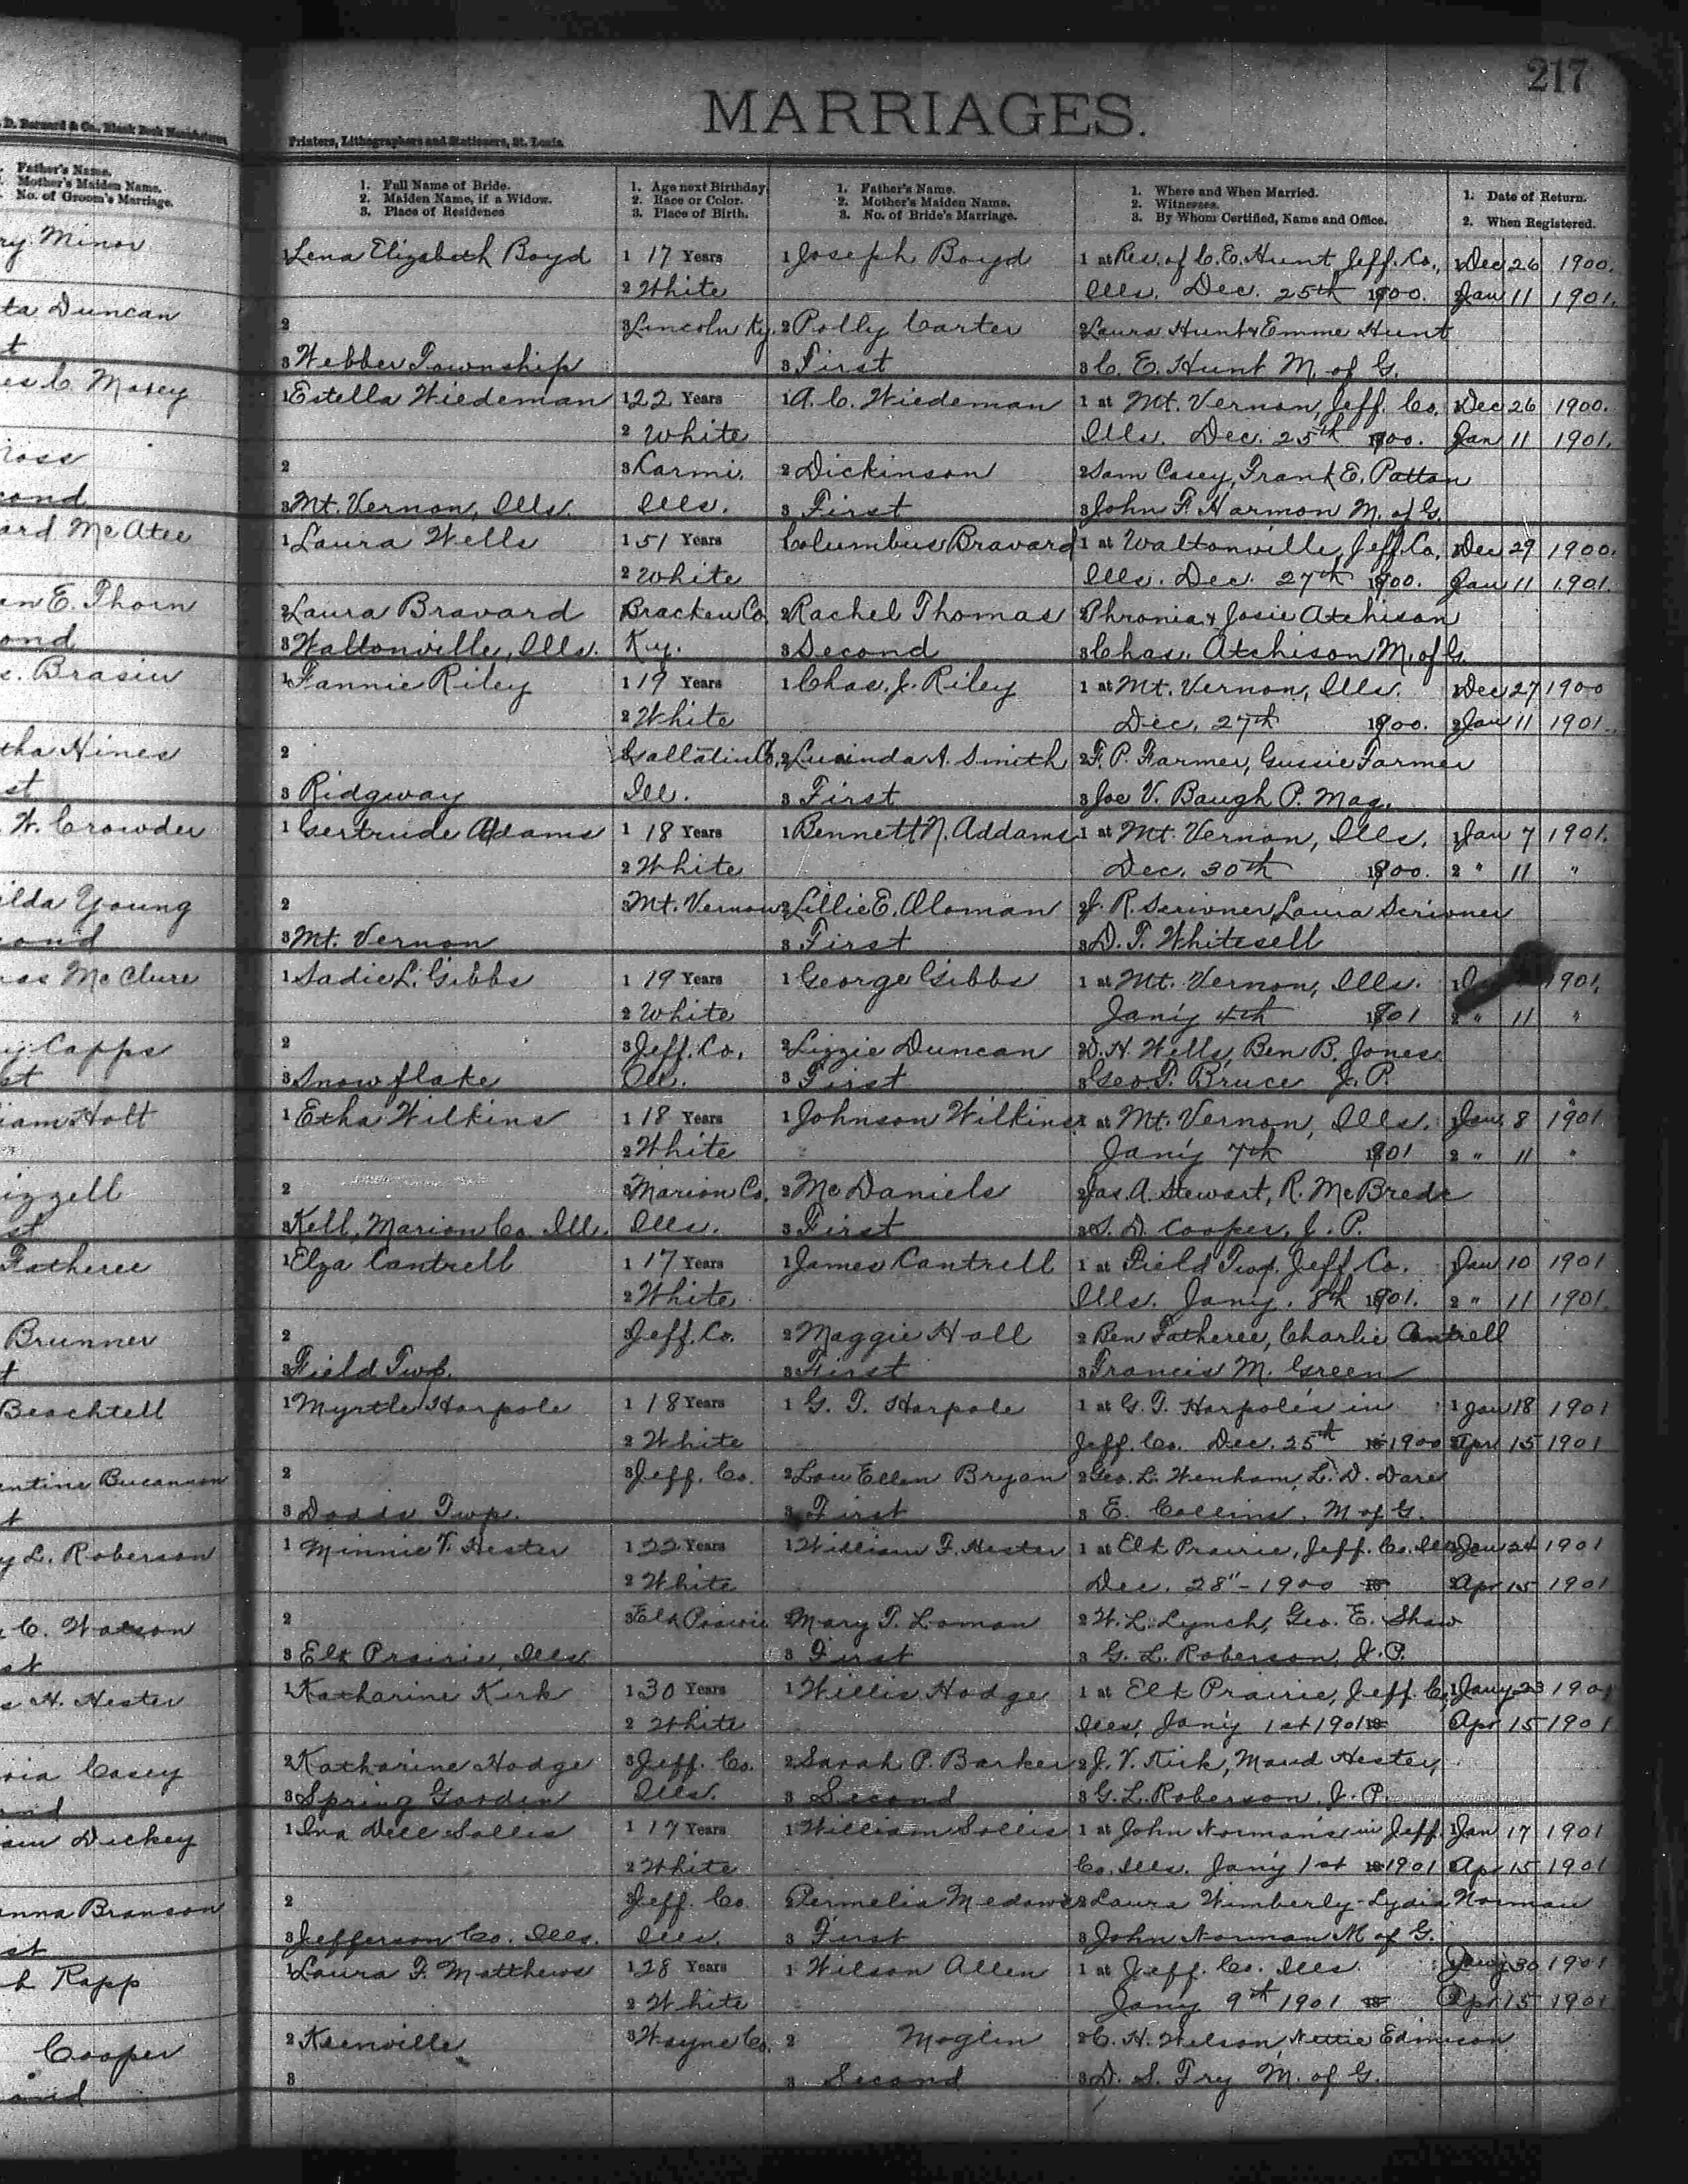 217
MARRIAGES.
D. Barnard & Co., Blank Book Manufacturers
Printers, Lithographers and Stationers, St. Louis.
Father's Name.
Mother's Maiden Name.
No. of Groom's Marriage.
1. Full Name of Bride.
2. Maiden Name, if a Widow.
3. Place of Residence
1. Age next Birthday.
2. Race or Color.
3. Place of Birth.
1. Father's Name.
2. Mother's Maiden Name.
3. No. of Bride's Marriage.
1. Where and When Married.
2. Witnesses.
3. By Whom Certified, Name and Office.
1. Date of Return.
2. When Registered.
ry Minor
1 Lena Elizabeth Boyd 1 17 Years 1 Joseph Boyd 1 at Res. of C. E. Hunt, Jeff. Co., 1 Dec 26 1900.
2 White Ills. Dec. 25th 1900. 2 Jan 11 1901.
ta Duncan
2 3 Lincoln Ky. 2 Polly Carter 2 Laura Hunt & Emme Hunt
3 Webber Township 3 First 3 C. E. Hunt M. of G.
es C Maxey
1 Estella Wiedeman 1 22 Years 1 A. C. Wiedeman 1 at Mt. Vernon, Jeff. Co. 1 Dec 26 1900.
2 White Ills. Dec. 25th 1900. Jan 11 1901.
2 3 Carmi, 2 Dickinson 2 Sam Casey, Frank E. Patton
cond
3 Mt. Vernon, Ills. Ills. 3 First 3 John F. Harmon M. of G.
ard McAtee
1 Laura Wells 1 51 Years Columbus Bravard 1 at Waltonville, Jeff. Co, 1 Dec 29 1900.
2 White Ills. Dec. 27th 1900. Jan 11 1901.
en E. Thorn
2 Laura Bravard Bracken Co, 2 Rachel Thomas Phronia & Josie Atchison
ond
3 Waltonville, Ills. Ky. 3 Second 3 Chas. Atchison M. of G.
s. Brasiu
1 Fannie Riley 1 19 Years 1 Chas. J. Riley 1 at Mt. Vernon, Ills. 1 Dec 27 1900
2 White Dec. 27th 1900. 2 Jan 11 1901.
tha Hines
2 Gallatin Co, 2 Lucinda A. Smith 2 F. P. Farmer, Gussie Farmer
st
3 Ridgway Ill. 3 First 3 Joe V. Baugh P. Mag.
W. Crowder
1 Gertrude Adams 1 18 Years 1 Bennett N. Addams 1 at Mt. Vernon, Ills. 1 Jan 7 1901.
2 White Dec. 30th 1900. 2 " 11 "
ilda Young
2 3 Mt. Vernon 2 Lillie E. Aloman 2 J. R. Scrivner, Laura Scrivner
cond
3 Mt. Vernon 3 First 3 D. T. Whitesell
as McClure
1 Sadie L. Gibbs 1 19 Years 1 George Gibbs 1 at Mt. Vernon, Ills. 1901.
2 White Jan'y 4th 1901 2 " 11 "
y Capps
2 3 Jeff. Co, 2 Lizzie Duncan 2 D. H. Wells, Ben B. Jones
st
3 Snowflake Ill. 3 First 3 Geo. T. Bruce J. P.
iam Holt
1 Etha Wilkins 1 18 Years 1 Johnson Wilkins 1 at Mt. Vernon, Ills. 1 Jan 8 1901
2 White 2 Jan'y 7th 1901 2 " 11 "
izzell
2 3 Marion Co, 2 McDaniels 2 Jas. A. Stewart, R. McBrede
st
3 Kell, Marion Co. Ill. Ills. 3 First 3 S. D. Cooper, J. P.
Fatheree
1 Elza Cantrell 1 17 Years 1 James Cantrell 1 at Field Twp. Jeff Co. 1 Jan 10 1901
2 White Ills. Jany. 8th 1901. 2 " 11 1901.
Brunner
2 3 Jeff. Co. 2 Maggie Hall 2 Ben Fatheree, Charlie Cantrell
3 Field Twp. 3 First 3 Francis M. Green
Beachtell
1 Myrtle Harpole 1 18 Years 1 G. T. Harpole 1 at G. T. Harpole's in 1 Jan 18 1901
2 White Jeff. Co. Dec. 25th 1900 2 Apr 15 1901
ntine Bucannon
2 3 Jeff. Co. 2 Lou Ellen Bryan 2 Geo. L. Wenham, L. D. Dare
st
3 Dodds Twp. 3 First 3 E. Collins, M of G.
y L. Roberson
1 Minnie V. Hester 1 22 Years 1 William F. Hester 1 at Elk Prairie, Jeff. Co. Ills. Jan 24 1901
2 White Dec. 28" - 1900 2 Apr 15 1901
C. Watson
2 3 Elk Prairie 2 Mary T. Loman 2 W. L. Lynch, Geo. E. Shaw
st
3 Elk Prairie, Ills. 3 First 3 G. L. Roberson, J. P.
s H. Hester
1 Katharine Kirk 1 30 Years 1 Willis Hodge 1 at Elk Prairie, Jeff. Co, 1 Jany 23 1901
2 White Ills, Jan'y 1st 1901 Apr 15 1901
ria Casey
2 Katharine Hodge 3 Jeff. Co. 2 Sarah P. Barker 2 J. V. Kirk, Maud Hester,
3 Spring Garden Ills. 3 Second 3 G. L. Roberson, J. P.
iam Dickey
1 Ina Dell Sollis 1 17 Years 1 William Sollis 1 at John Norman's in Jeff. 1 Jan 17 1901
2 White Co. Ills. Jan'y 1st 1901 2 Apr 15 1901
nna Branson
2 3 Jeff. Co. 2 Permelia Medows 2 Laura Wimberly - Lydia Norman
st
3 Jefferson Co. Ills. Ills. 3 First 3 John Norman M of G.
h Rapp
1 Laura F. Matthews 1 28 Years 1 Wilson Allen 1 at Jeff. Co. Ills. Jany 30 1901
2 White Jany 9th 1901 2 Apr 15 1901
Cooper
2 Keenville 3 Wayne Co. 2 Moglin 2 C. H. Wilson, Nettie Edmison
ond
3 3 Second 3 D. S. Fry M. of G.